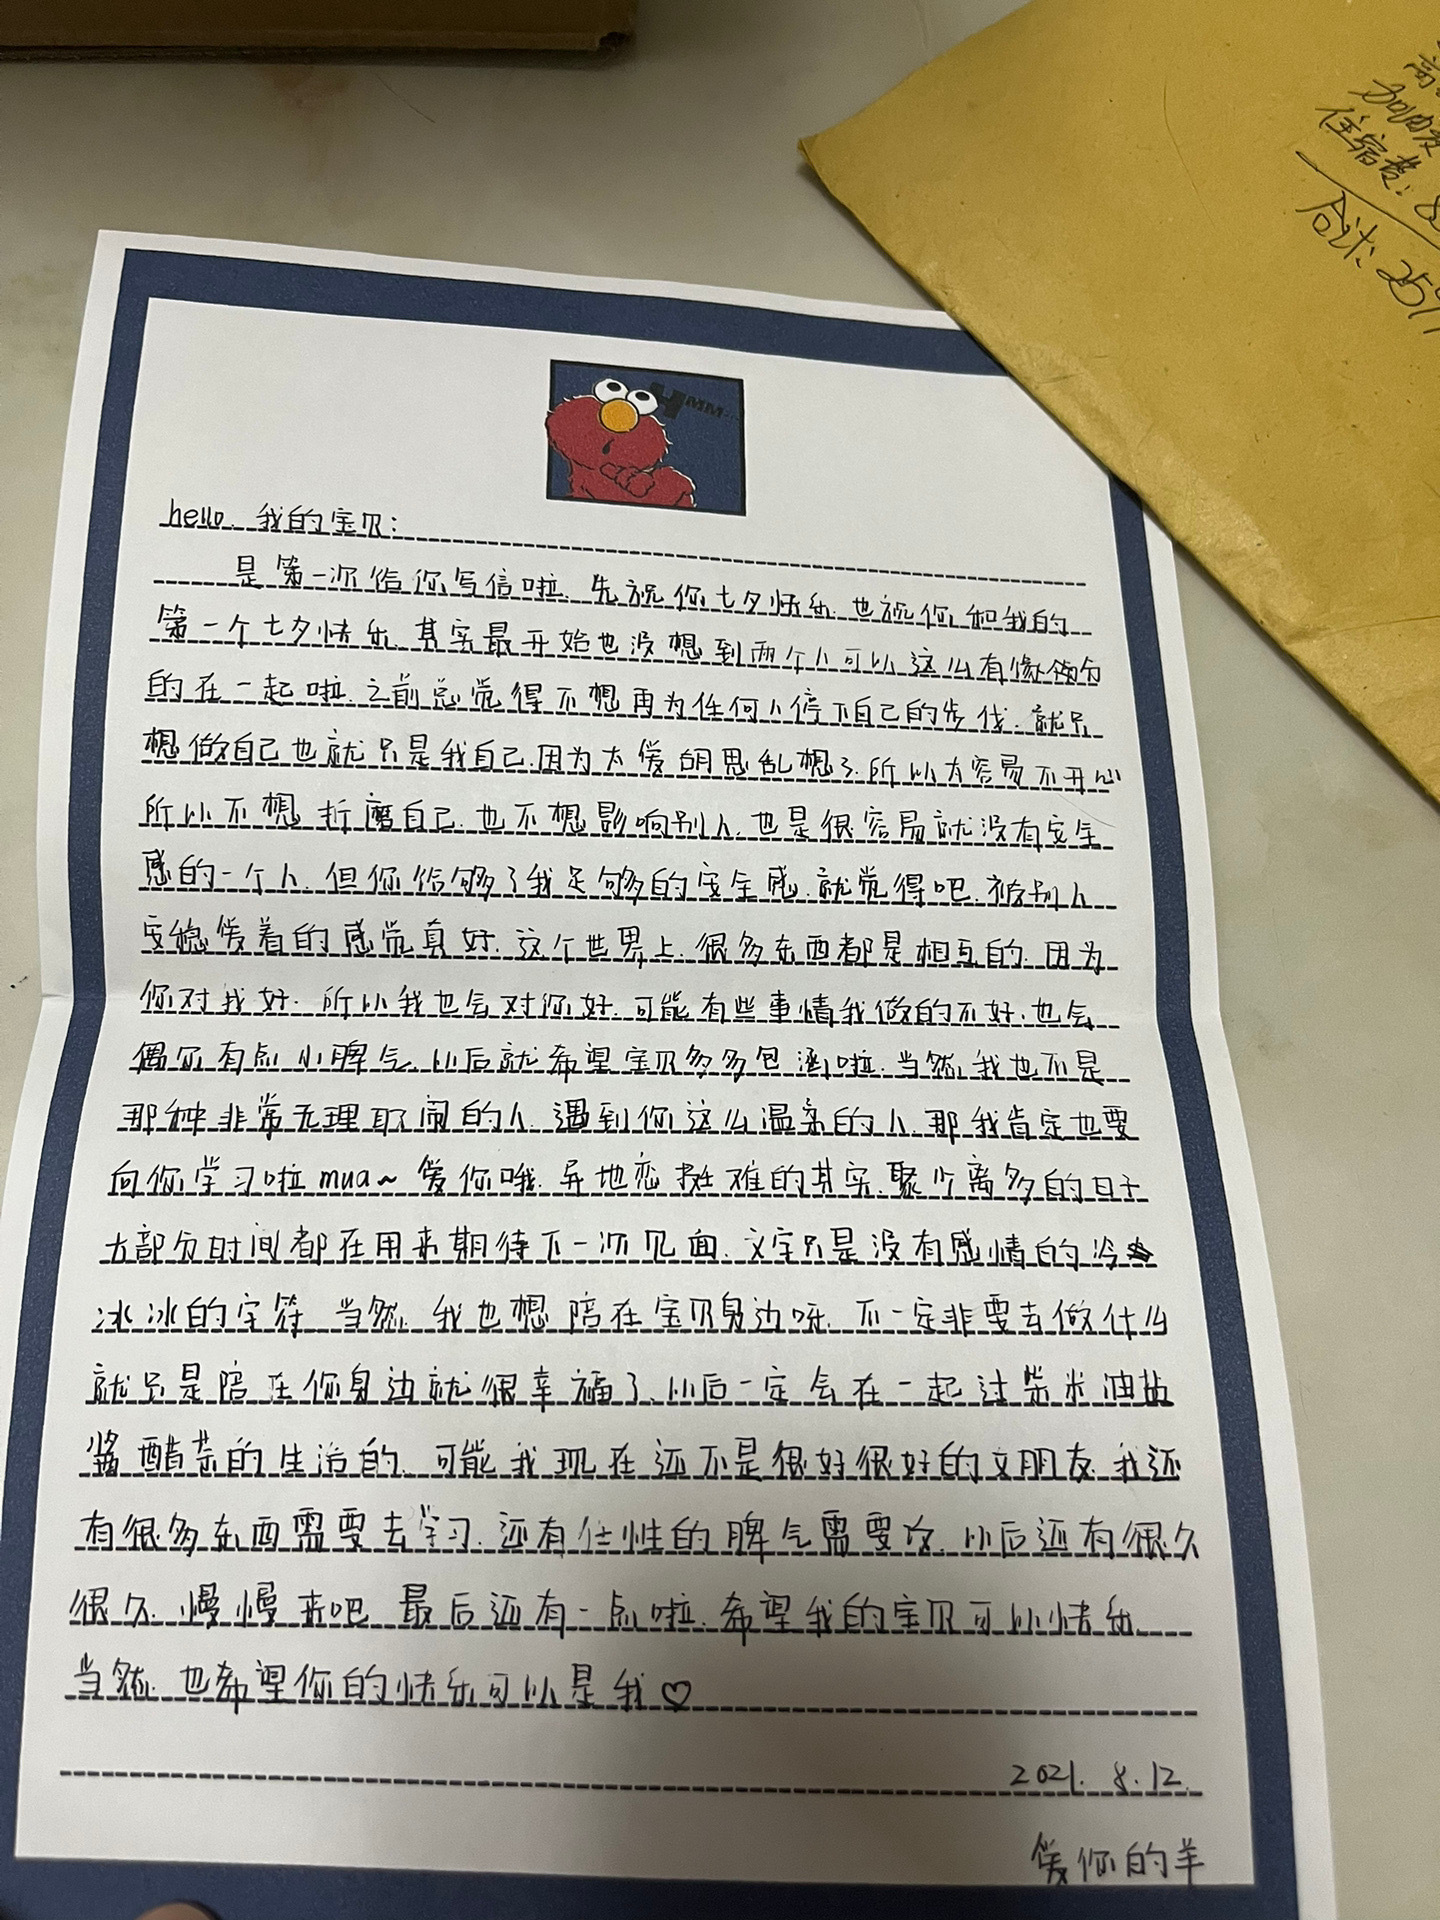 高
加油费
住宿费：8
合计：259
HMM...
hello. 我的宝贝：
是第一次给你写信啦. 先祝你七夕快乐. 也祝你和我的
第一个七夕快乐. 其实最开始也没想到两个人可以这么有缘分
的在一起啦. 之前总觉得不想再为任何人停下自己的步伐. 就只
想做自己也就只是我自己. 因为太爱胡思乱想了. 所以太容易不开心
所以不想折磨自己. 也不想影响别人. 也是很容易就没有安全
感的一个人. 但你给够了我足够的安全感. 就觉得吧. 被别人
安稳爱着的感觉真好. 这个世界上. 很多东西都是相互的. 因为
你对我好. 所以我也会对你好. 可能有些事情我做的不好. 也会
偶尔有点小脾气. 以后就希望宝贝多多包涵啦. 当然. 我也不是
那种非常无理取闹的人. 遇到你这么温柔的人. 那我肯定也要
向你学习啦mua~ 爱你哦. 异地恋挺难的其实. 聚少离多的日子
大部分时间都在用来期待下一次见面. 文字只是没有感情的冷
冰冰的字符. 当然. 我也想陪在宝贝身边呀. 不一定非要去做什么
就只是陪在你身边就很幸福了. 以后一定会在一起过柴米油盐
酱醋茶的生活的. 可能我现在还不是很好很好的女朋友. 我还
有很多东西需要去学习. 还有任性的脾气需要改. 以后还有很久
很久. 慢慢来吧. 最后还有一点啦. 希望我的宝贝可以快乐
当然. 也希望你的快乐可以是我♡
2021. 8. 12.
爱你的羊